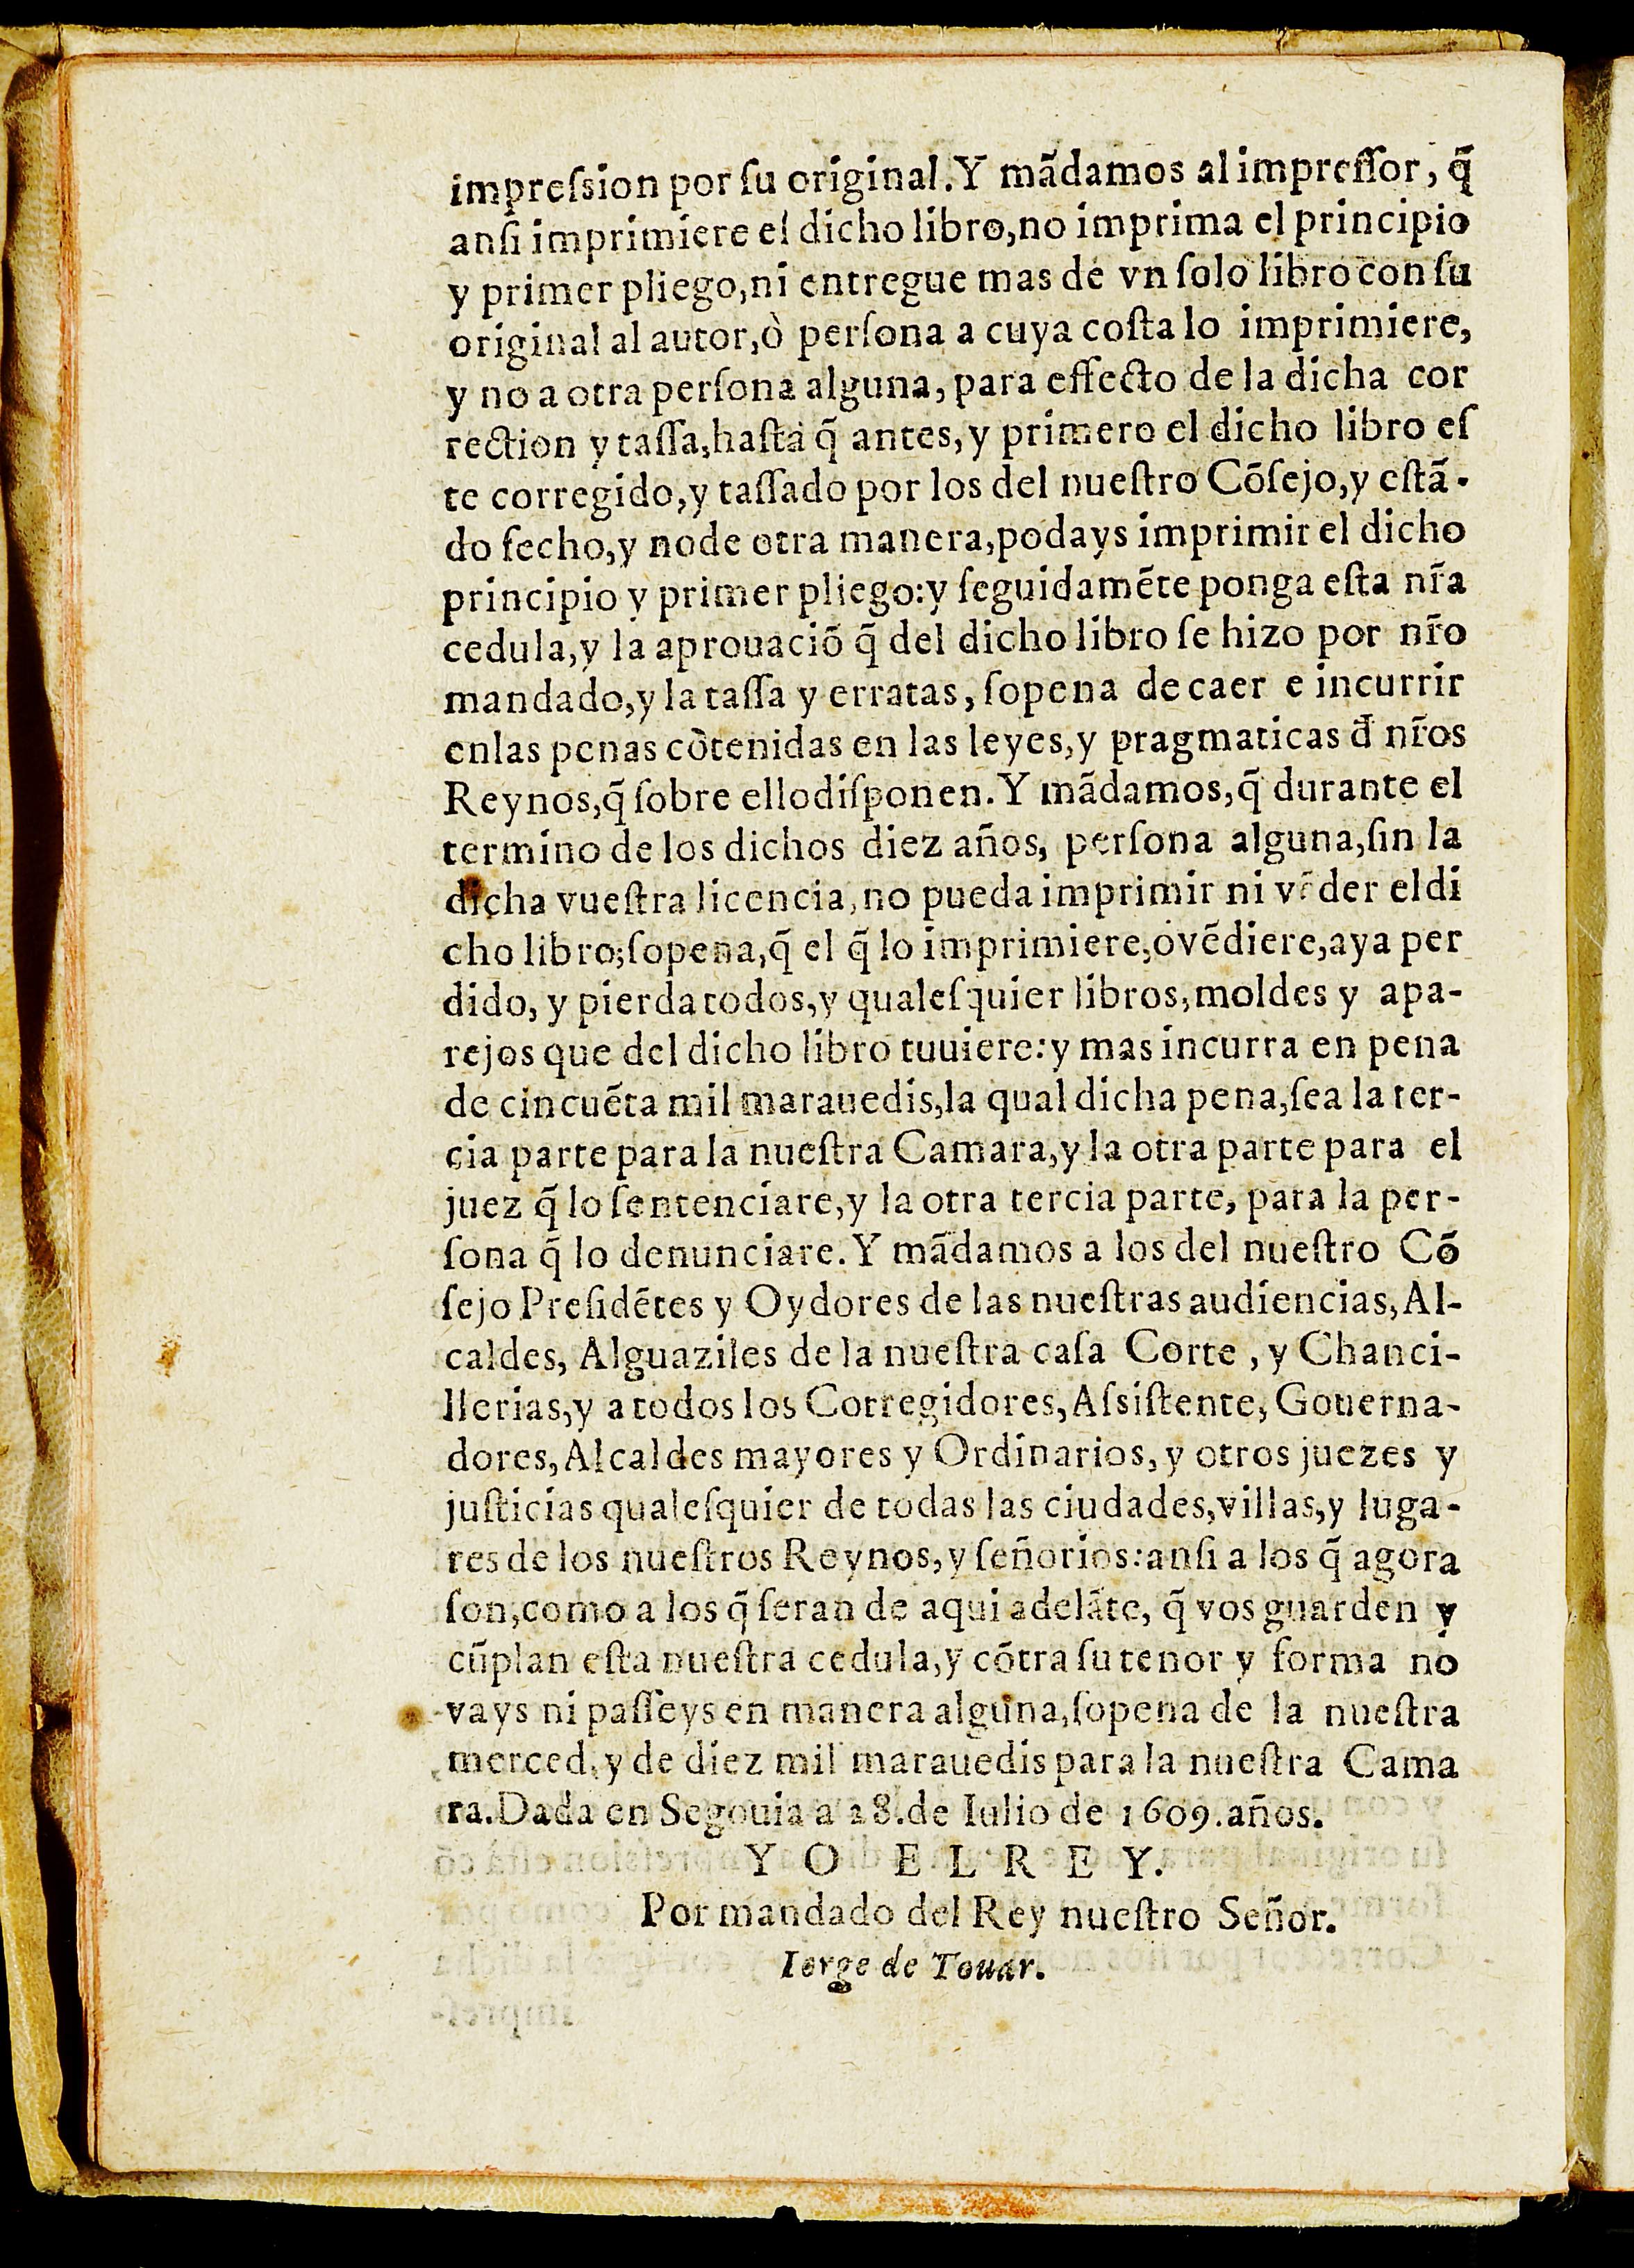 impreſsion por ſu original. Y mãdamos al impreſſor, q̃
anſi imprimiere el dicho libro, no imprima el principio
y primer pliego, ni entregue mas de vn ſolo libro con ſu
original al autor, ò perſona a cuya coſta lo imprimiere,
y no a otra perſona alguna, para effecto de la dicha cor
rection y taſſa, haſta q̃ antes, y primero el dicho libro eſ
te corregido, y taſſado por los del nueſtro Cõſejo, y eſtã-
do fecho, y no de otra manera, podays imprimir el dicho
principio y primer pliego: y ſeguidamẽte ponga eſta nr̃a
cedula, y la aprouaciõ q̃ del dicho libro ſe hizo por nr̃o
mandado, y la taſſa y erratas, ſopena de caer e incurrir
en las penas cõtenidas en las leyes, y pragmaticas d̃ nr̃os
Reynos, q̃ ſobre ello diſponen. Y mãdamos, q̃ durante el
termino de los dichos diez años, perſona alguna, ſin la
dicha vueſtra licencia, no pueda imprimir ni vẽder el di
cho libro; ſopena, q̃ el q̃ lo imprimiere, o vẽdiere, aya per
dido, y pierda todos, y qualeſquier libros, moldes y apa-
rejos que del dicho libro tuuiere: y mas incurra en pena
de cincuẽta mil marauedis, la qual dicha pena, ſea la ter-
cia parte para la nueſtra Camara, y la otra parte para el
juez q̃ lo ſentenciare, y la otra tercia parte, para la per-
ſona q̃ lo denunciare. Y mãdamos a los del nueſtro Cõ
ſejo Preſidẽtes y Oydores de las nueſtras audiencias, Al-
caldes, Alguaziles de la nueſtra caſa Corte, y Chanci-
llerias, y a todos los Corregidores, Aſsiſtente, Gouerna-
dores, Alcaldes mayores y Ordinarios, y otros juezes y
juſticias qualeſquier de todas las ciudades, villas, y luga-
res de los nueſtros Reynos, y ſeñorios: anſi a los q̃ agora
ſon, como a los q̃ ſeran de aqui adelãte, q̃ vos guarden y
cũplan eſta nueſtra cedula, y cõtra ſu tenor y forma no
vays ni paſſeys en manera alguna, ſopena de la nueſtra
merced, y de diez mil marauedis para la nueſtra Cama
ra. Dada en Segouia a 28. de Iulio de 1609. años.
YO EL REY.
Por mandado del Rey nueſtro Señor.
Iorge de Touar.